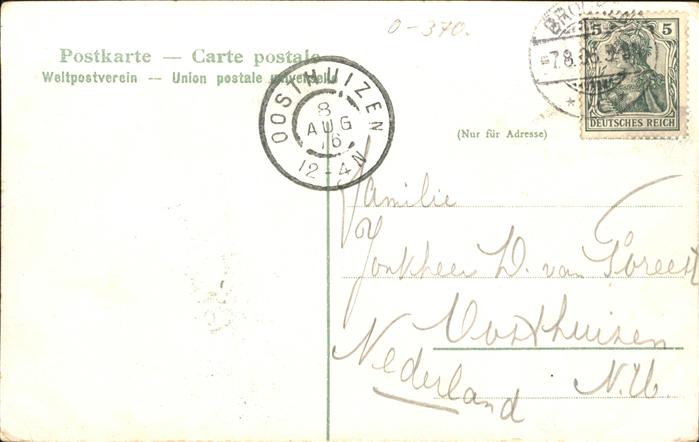 0-370.
Postkarte — Carte postale
Weltpostverein — Union postale universelle
5 5
DEUTSCHES REICH
7.8.06.
OOSTHUIZEN
8
AUG
12-4N
(Nur für Adresse)
Familie
Jonkheer D. van Foreest
Oosthuizen
Nederland N.H.